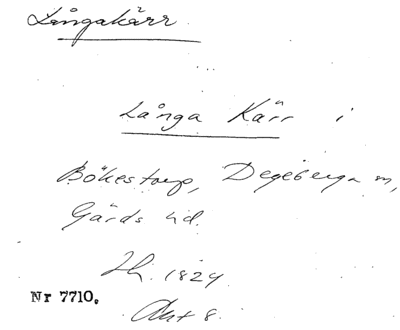 Långakärr.
Långa Kärr i
Bökestorp, Degeberga sn,
Gärds hd.
1824
Nr 7710.
Akt 8.